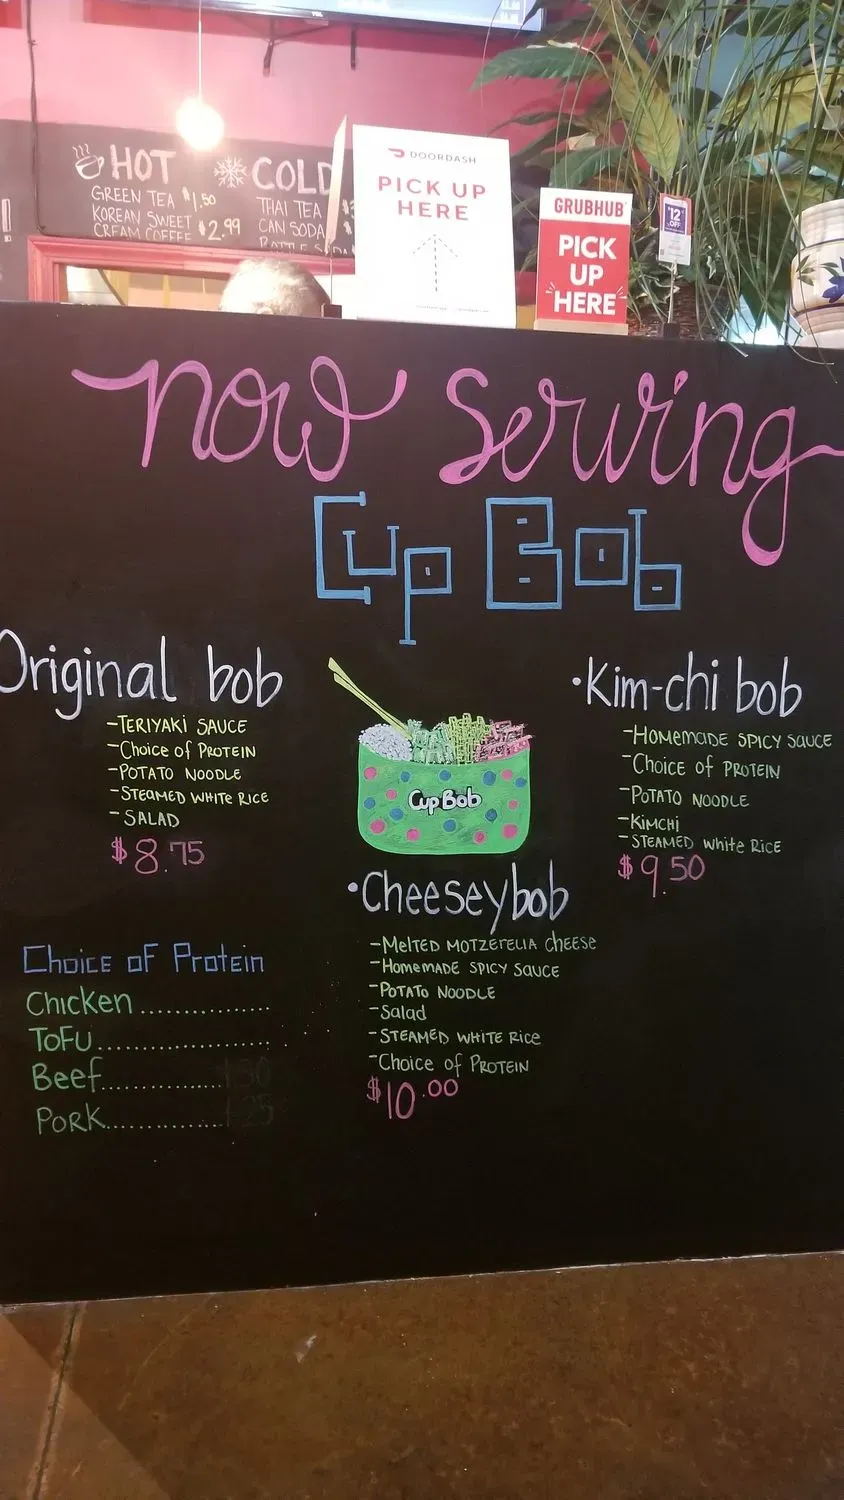 HOT
GREEN TEA $1.50
KOREAN SWEET
CREAM COFFEE $2.99
COLD
THAI TEA
CAN SODA
BOTTLE SODA
DOORDASH
PICK UP
HERE
GRUBHUB
PICK
UP
HERE
$12
OFF
now serving
Cup Bob
Original bob
-TERIYAKI SAUCE
-Choice of PROTEIN
-POTATO NOODLE
-STEAMED WHITE RICE
-SALAD
$8.75
Cup Bob
·Kim-chi bob
-HOMEMADE SPICY SAUCE
-Choice of PROTEIN
-POTATO NOODLE
-KIMCHI
-STEAMED White RICE
$9.50
·Cheesey bob
-MELTED MOTZERELIA cheese
-HOMEMADE SPICY SAUCE
-POTATO NOODLE
-Salad
-STEAMED WHITE RICE
-Choice of PROTEIN
$10.00
Choice of Protein
Chicken...............
ToFU......................
Beef...............
PORK...............